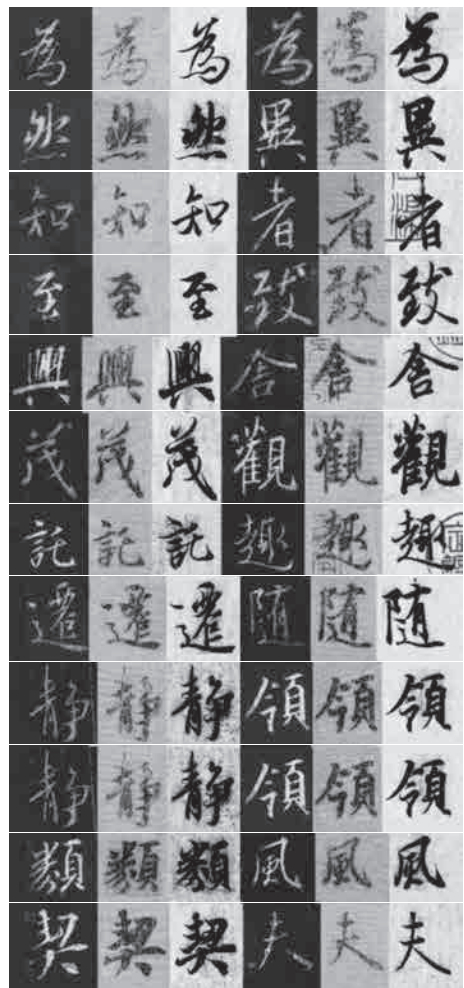 為為為為為為
然然然異異異
知知知者者者
至至至致致致
興興興舍舍舍
茂茂茂觀觀觀
託託託趣趣趣
遷遷遷随随随
静静静領領領
静静静領領領
類類類風風風
契契契夫夫夫